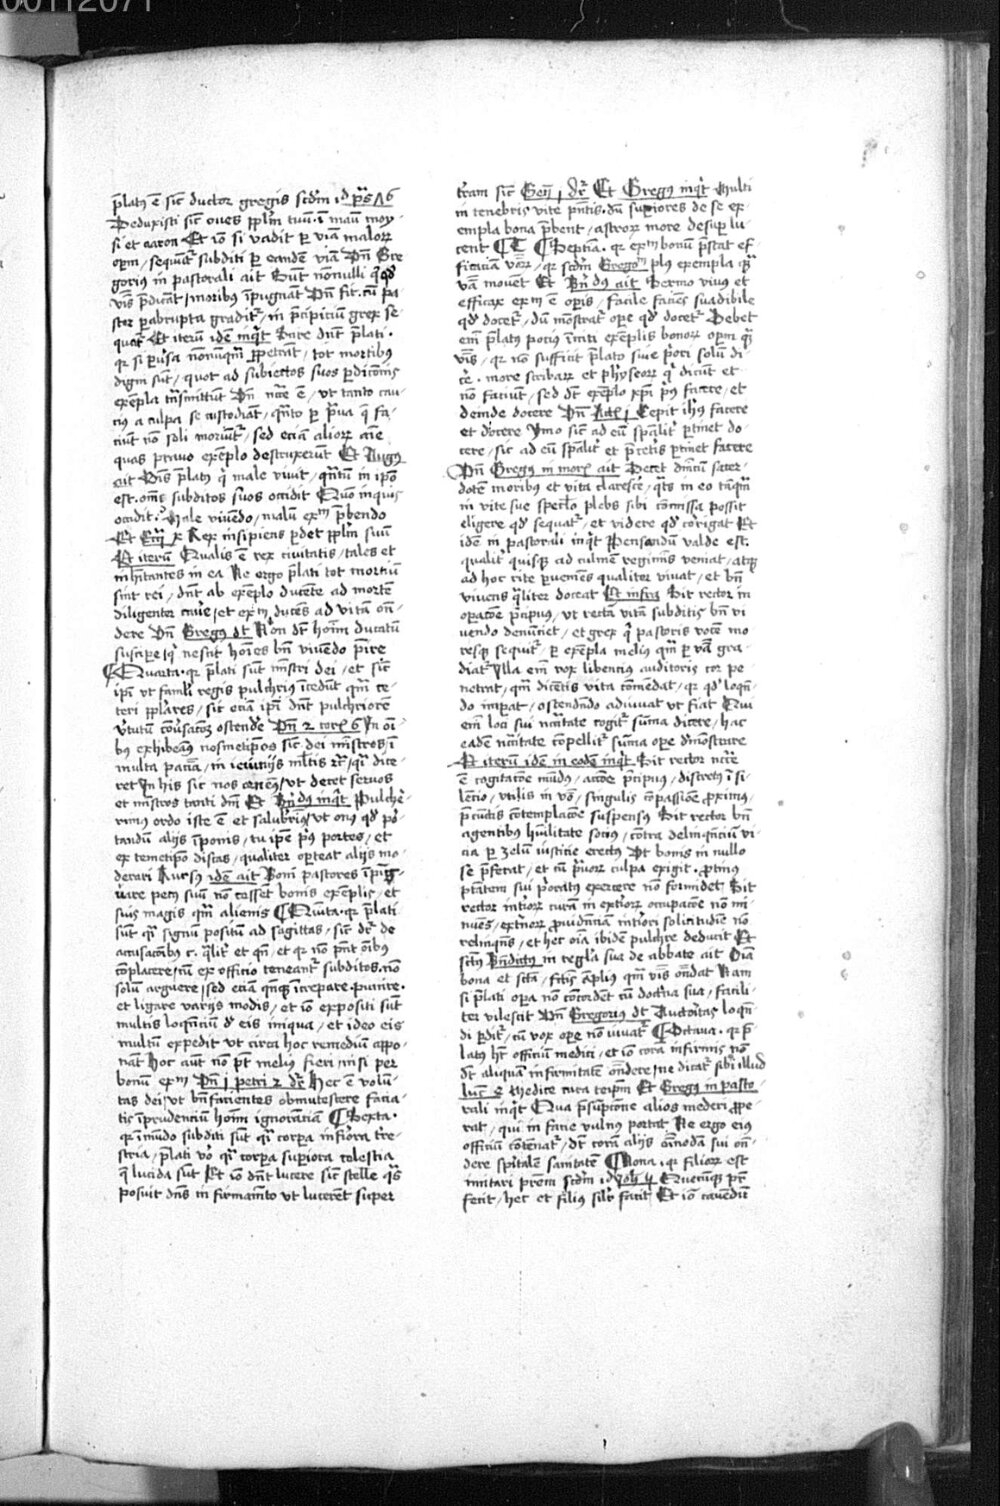 00112071
p̄latꝰ ē sic̄ ductor gregis scd̄m id ps̄ 76
Deduxisti sic̄ oues ppl̄m tuū ī manu moy-
si et aaron Et iō si vadit ꝑ viā malorꝝ
opm̄, sequūt̄ subditi ꝑ eandē viā Vn̄ Gre
gorius in pastorali ait Sunt nōnulli
vīs p̄dicāt, moribus īpugnāt Vn̄ fit cū pa-
stor ꝑ abrupta gradit̄, in p̄cipiciū grex se-
quat̄ Et iterū idē inq̄t Scire dn̄t p̄lati
qꝛ si ꝑuersa nōnunqm̄ ꝑpetrāt, tot mortibꝰ
digni sūt, quot ad subiectos suos ꝑdicōnis
exempla tn̄smittūt Vn̄ ncc̄e ē, vt tanto cau-
ciꝰ a culpa se custodiāt, qn̄to ꝑ praua q̄ fa-
ciūt nō soli moriūt̄, sed eciā aliorꝝ aīe
quas prauo exemplo destruxerūt Et Augꝰ
ait Om̄s p̄latꝰ q̄ male viuit, qn̄tū in ipō
est, om̄s subditos suos occidit Quō inquis
occidit? Male viuendo, malū exm̄ p̄bendo
Et Eccī x Rex insipiens ꝑdet ppl̄m suū
Et iterū Qualis ē rex ciuitatis, tales et
inhitantes in ea Ne ergo p̄lati tot mortiū
sint rei, dn̄t ab exemplo ducēte ad mortē
diligenter cauē, et exm̄ ducēs ad vitā on̄-
dere Vn̄ Gregꝰ dt̄ Nō dt̄ hoīm ducatū
suscipe, q̄ nescit hoīes bn̄ viuēdo p̄ire
Quarta qꝛ p̄lati sunt mīstri dei, et sic̄
ipī vt famlī regis pulchrius īcedūt qm̄ ce-
teri pplares, sic̄ eciā ipī dn̄t pulchriorē
v̄tutū cōuersacōꝫ ostendē Vn̄ 2 cor 6 In oī-
bꝰ exhibeāꝰ nosmetipōs sic̄ dei mīstros, ī
multa paciā, in ieiunijs ml̄tis ꝛc̄, qͣ dice-
ret In his sic̄ nos cenemꝰ, vt decet seruos
et mīstros tanti dnī Et Bn̄dꝰ inq̄t Pulcher
rimꝰ ordo iste ē et saluberimꝰ, vt onꝰ qd̄ por
tandū alijs īponis, tu ipē pͥus portes, et
ex temetipō discas, qualiter oporteat alijs mo-
derari Rursꝰ idē ait Boni pastores īping-
uare pecꝰ suū nō cesset bonis exemplis, et
suis magis qm̄ alienis Quīta qꝛ p̄lati
sunt qͣ signū positū ad sagittas, sic̄ dr̄ de
accusacōibus
cōplacere, cū ex officio teneant̄ subditos nō
solū arguere, sed eciā qn̄qꝫ increpare punire
et ligare varijs modis, et iō expositi sūt
multis loquenciū de eis iniqua, et ideo eis
multū expedit vt circa hoc remediū appo-
nāt Hoc aut nō pt̄ melius fieri nisi per
bonū exm̄ Vn̄ j petri 2 dr̄ Hec ē volū-
tas dei, vt bn̄facientes obmutescere facia-
tis īprudenciū hoīm ignoranciā Sexta
qꝛ ī mūdo subditi sūt qͣ corpora inferiora tre-
stria, p̄lati vo qͣ corpora supiora celestia
q̄ lucida sūt Et iō dn̄t lucere sic̄ stelle qͣs
posuit dn̄s in firmamēto vt lucerēt super
tr̄am sic̄ Gen̄ j dr̄ Et Gregꝰ inq̄t Multi
in tenebris vite pn̄tis, dū supiores de se ex-
empla bona p̄bent, astrorꝝ more desup lu-
cent Septīa qꝛ exm̄ bonū p̄stat ef-
ficaciā v̄borꝝ, qꝛ scd̄m Gregoꝛ plꝰ exempla qͣ
v̄ba mouēt Et Bn̄dꝰ ait Sermo viuus et
efficax exm̄ ē opis, facile faciēs suadibile
qd̄ docet̄, dū mōstrat̄ ope qd̄ docet̄ Debet
enī p̄latꝰ potius īniti exemplis bonorꝝ opm̄ qͣ
v̄bis, qꝛ nō sufficit p̄lato siue p̄tori solū di-
ce more scribarꝝ et physeorꝝ q̄ dicūt et
nō faciunt, sed dt̄ exemplo xpī pͥus facere, et
deinde docere Vn̄ Act j Cepit ihꝰ facere
et docere Ymo sic̄ ad eū spāliter ꝑtinet do-
cere, sic ad eū spāliter et p̄ ceteris ꝑtinet facere
Vn̄ Gregꝰ in moral ait Decet dm̄cū sacer-
dotē moribus et vita clarescē, qͣts in eo tn̄qm̄
in vite sue speclo plebs sibi cōmissa possit
eligere qd̄ sequat̄, et videre qd̄ corrigat Et
idē in pastorali inq̄t Ppensandū valde est
qualiter quisqꝫ ad culmē regiminis veniat, atqꝫ
ad hoc rite ꝑueniens qualiter viuat, et bn̄
viuens qͣliter doceat Et infra Sit rector in
opacōne p̄cipuꝰ, vt rectā vitā subditis bn̄ vi
uendo denūciet, et grex q̄ pastoris vocē mo
resqꝫ sequit̄, ꝑ exempla melius qm̄ ꝑ v̄ba gra-
diat̄ Illa enī vox libencius auditoris cor pe-
netrat, qm̄ dicētis vita cōmendat, qꝛ qd̄ loquē-
do impat, ostendendo adiuuat vt fiat Qui
enī loci sui nccītate cogit̄ sūma dicere, hac
eadē nccītate cōpellit̄ sūma ope demōstrare
Et iterū idē in eodē inq̄t Sit rector ncc̄ie
ē cogitacōne mūdus, accōne p̄cipuꝰ, discretꝰ ī si-
lencio, vtilis in v̄bo, singulis cōpassione ꝓximꝰ,
p̄ cunctis contemplacōne suspensꝰ Sit rector bn̄
agentibus humilitate sociꝰ, contra delinquenciū vi-
cia ꝑ zelū iusticie erectꝰ Vt bonis in nullo
se p̄ferat, et cū prauorꝝ culpa exigit ꝓtinus
ptātem sui prioratꝰ exercere nō formidet Sit
rector interiorꝝ curam in exteriorꝝ occupacōne nō mi-
nuēs, exteriorꝝ ꝓuidenciam interiori solicitudie nō
relinquēs, et hec oīa ibidem pulchre deducit Et
sctūs Bn̄dictꝰ in regula sua de abbate ait Oīa
bona et scta, factis ampliꝰ qm̄ v̄bis ondat Nam
si p̄lati opa nō cōcordēt cū doctrina sua, facili-
ter vilescit Vn̄ Gregorius dt̄ Auctoritas loquē-
di ꝑdit̄, cū vox ope nō iuuat̄ Octaua qꝛ p̄-
latꝰ ht̄ officiū medici, et iō corā infirmis nō
dt̄ aliquam infirmitatē ondere, ne dicat̄ sibi illud
luc̄ 4 Medice cura teipm̄ Et Gregꝰ in pasto-
rali inq̄t Qua p̄sumpcōne alios mederi ppe-
rat, qui in facie vulnus portat Ne ergo eius
officiū contēnat̄, dt̄ corā alijs om̄imodam sui on-
dere spūalē sanitatē Nona, qꝛ filiorꝝ est
imitari pr̄em scd̄m id Joh 5 Quecūqꝫ pr̄
fecit, hec et filius silr̄ facit Et iō cauendū